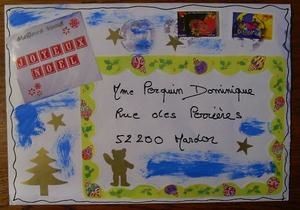 Meilleurs Voeux
JOYEUX
NOËL
Mme Porquin Dominique
Rue des Poirières
52200 Mardor